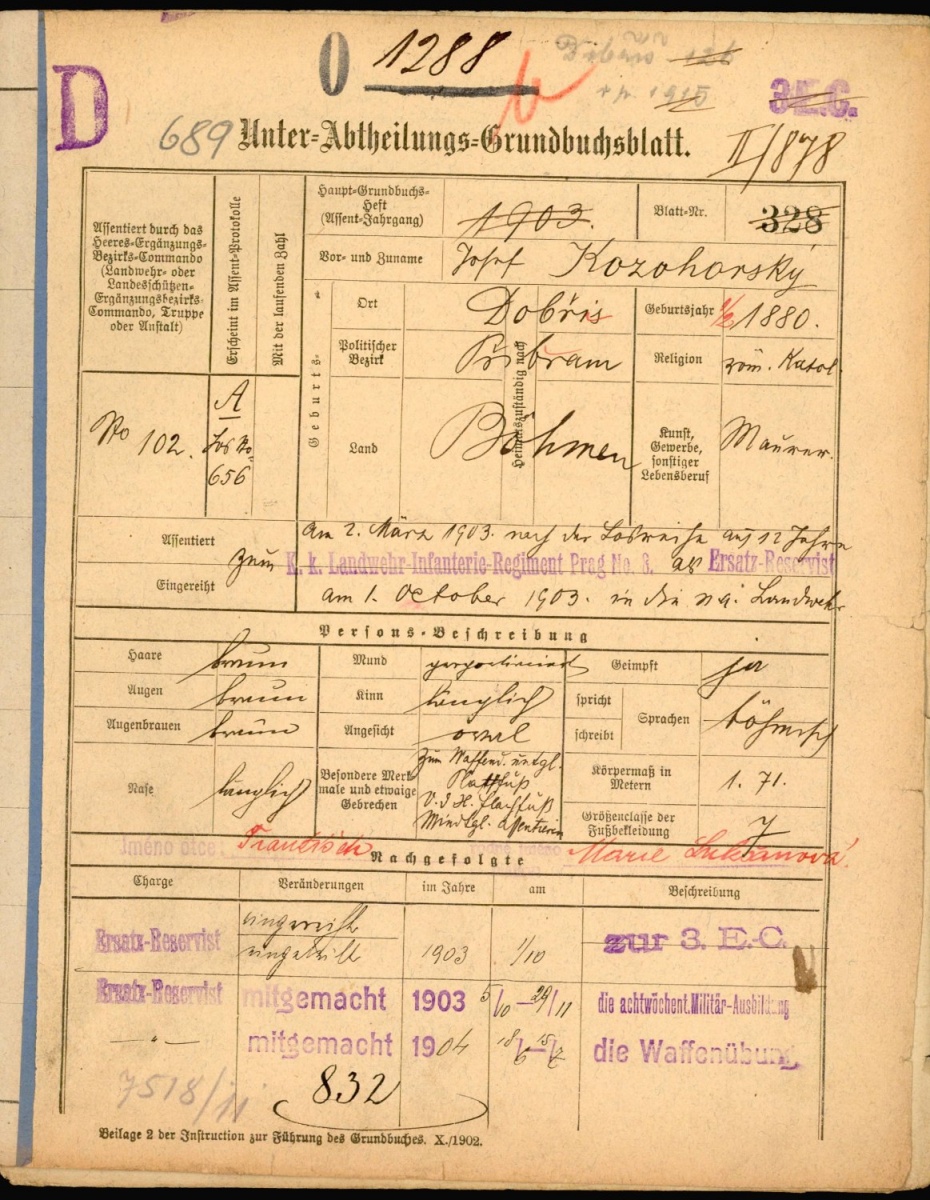 D
0 1288
126
1915
3.E.C.
689 Unter-Abtheilungs-Grundbuchsblatt. II/878
Assentiert durch das
Heeres-Ergänzungs-
Bezirks-Commando
(Landwehr- oder
Landesschützen-
Ergänzungsbezirks-
Commando, Truppe
oder Anstalt)
Erscheint im Assent-Protokolle
Mit der laufenden Zahl
Haupt-Grundbuchs-
Heft
(Assent-Jahrgang)
1903.
Blatt-Nr.
328
Vor- und Zuname Josef Kozohorský
Geburts-
Heimatszuständig nach
Ort Dobřis
Geburtsjahr 1880.
Politischer
Bezirk
Přibram
Religion röm. Katol.
Land Böhmen
Kunst,
Gewerbe,
sonstiger
Lebensberuf
Maurer.
No 102.
A
Los No
656
Assentiert am 2. März 1903. nach der Losreihe auf 12 Jahre
zum K. k. Landwehr-Infanterie-Regiment Prag No. 8. als Ersatz-Reservist
Eingereiht am 1. October 1903. in die Landwehr
Persons-Beschreibung
Haare braun Mund proportioniert Geimpft ja
Augen braun Kinn länglich
spricht
schreibt
Sprachen böhmisch
Augenbrauen braun Angesicht oval
Nase länglich
Besondere Merk-
male und etwaige
Gebrechen
Zum Waffend. untgl.
Plattfuß
Mindtgl. assentieren
Körpermaß in
Metern
1.71.
Größenclasse der
Fußbekleidung
7
Jméno otce: František
Nachgefolgte
rodné jméno
Marie Lukánová
Charge Veränderungen im Jahre am Beschreibung
Ersatz-Reservist eingereiht
1903 1/10 zur 3. E.-C.
Ersatz-Reservist mitgemacht 1903 5/10–29/11 die achtwöchent. Militär-Ausbildung
—"— mitgemacht 1904 die Waffenübung
7518/11
832
Beilage 2 der Instruction zur Führung des Grundbuches. X./1902.